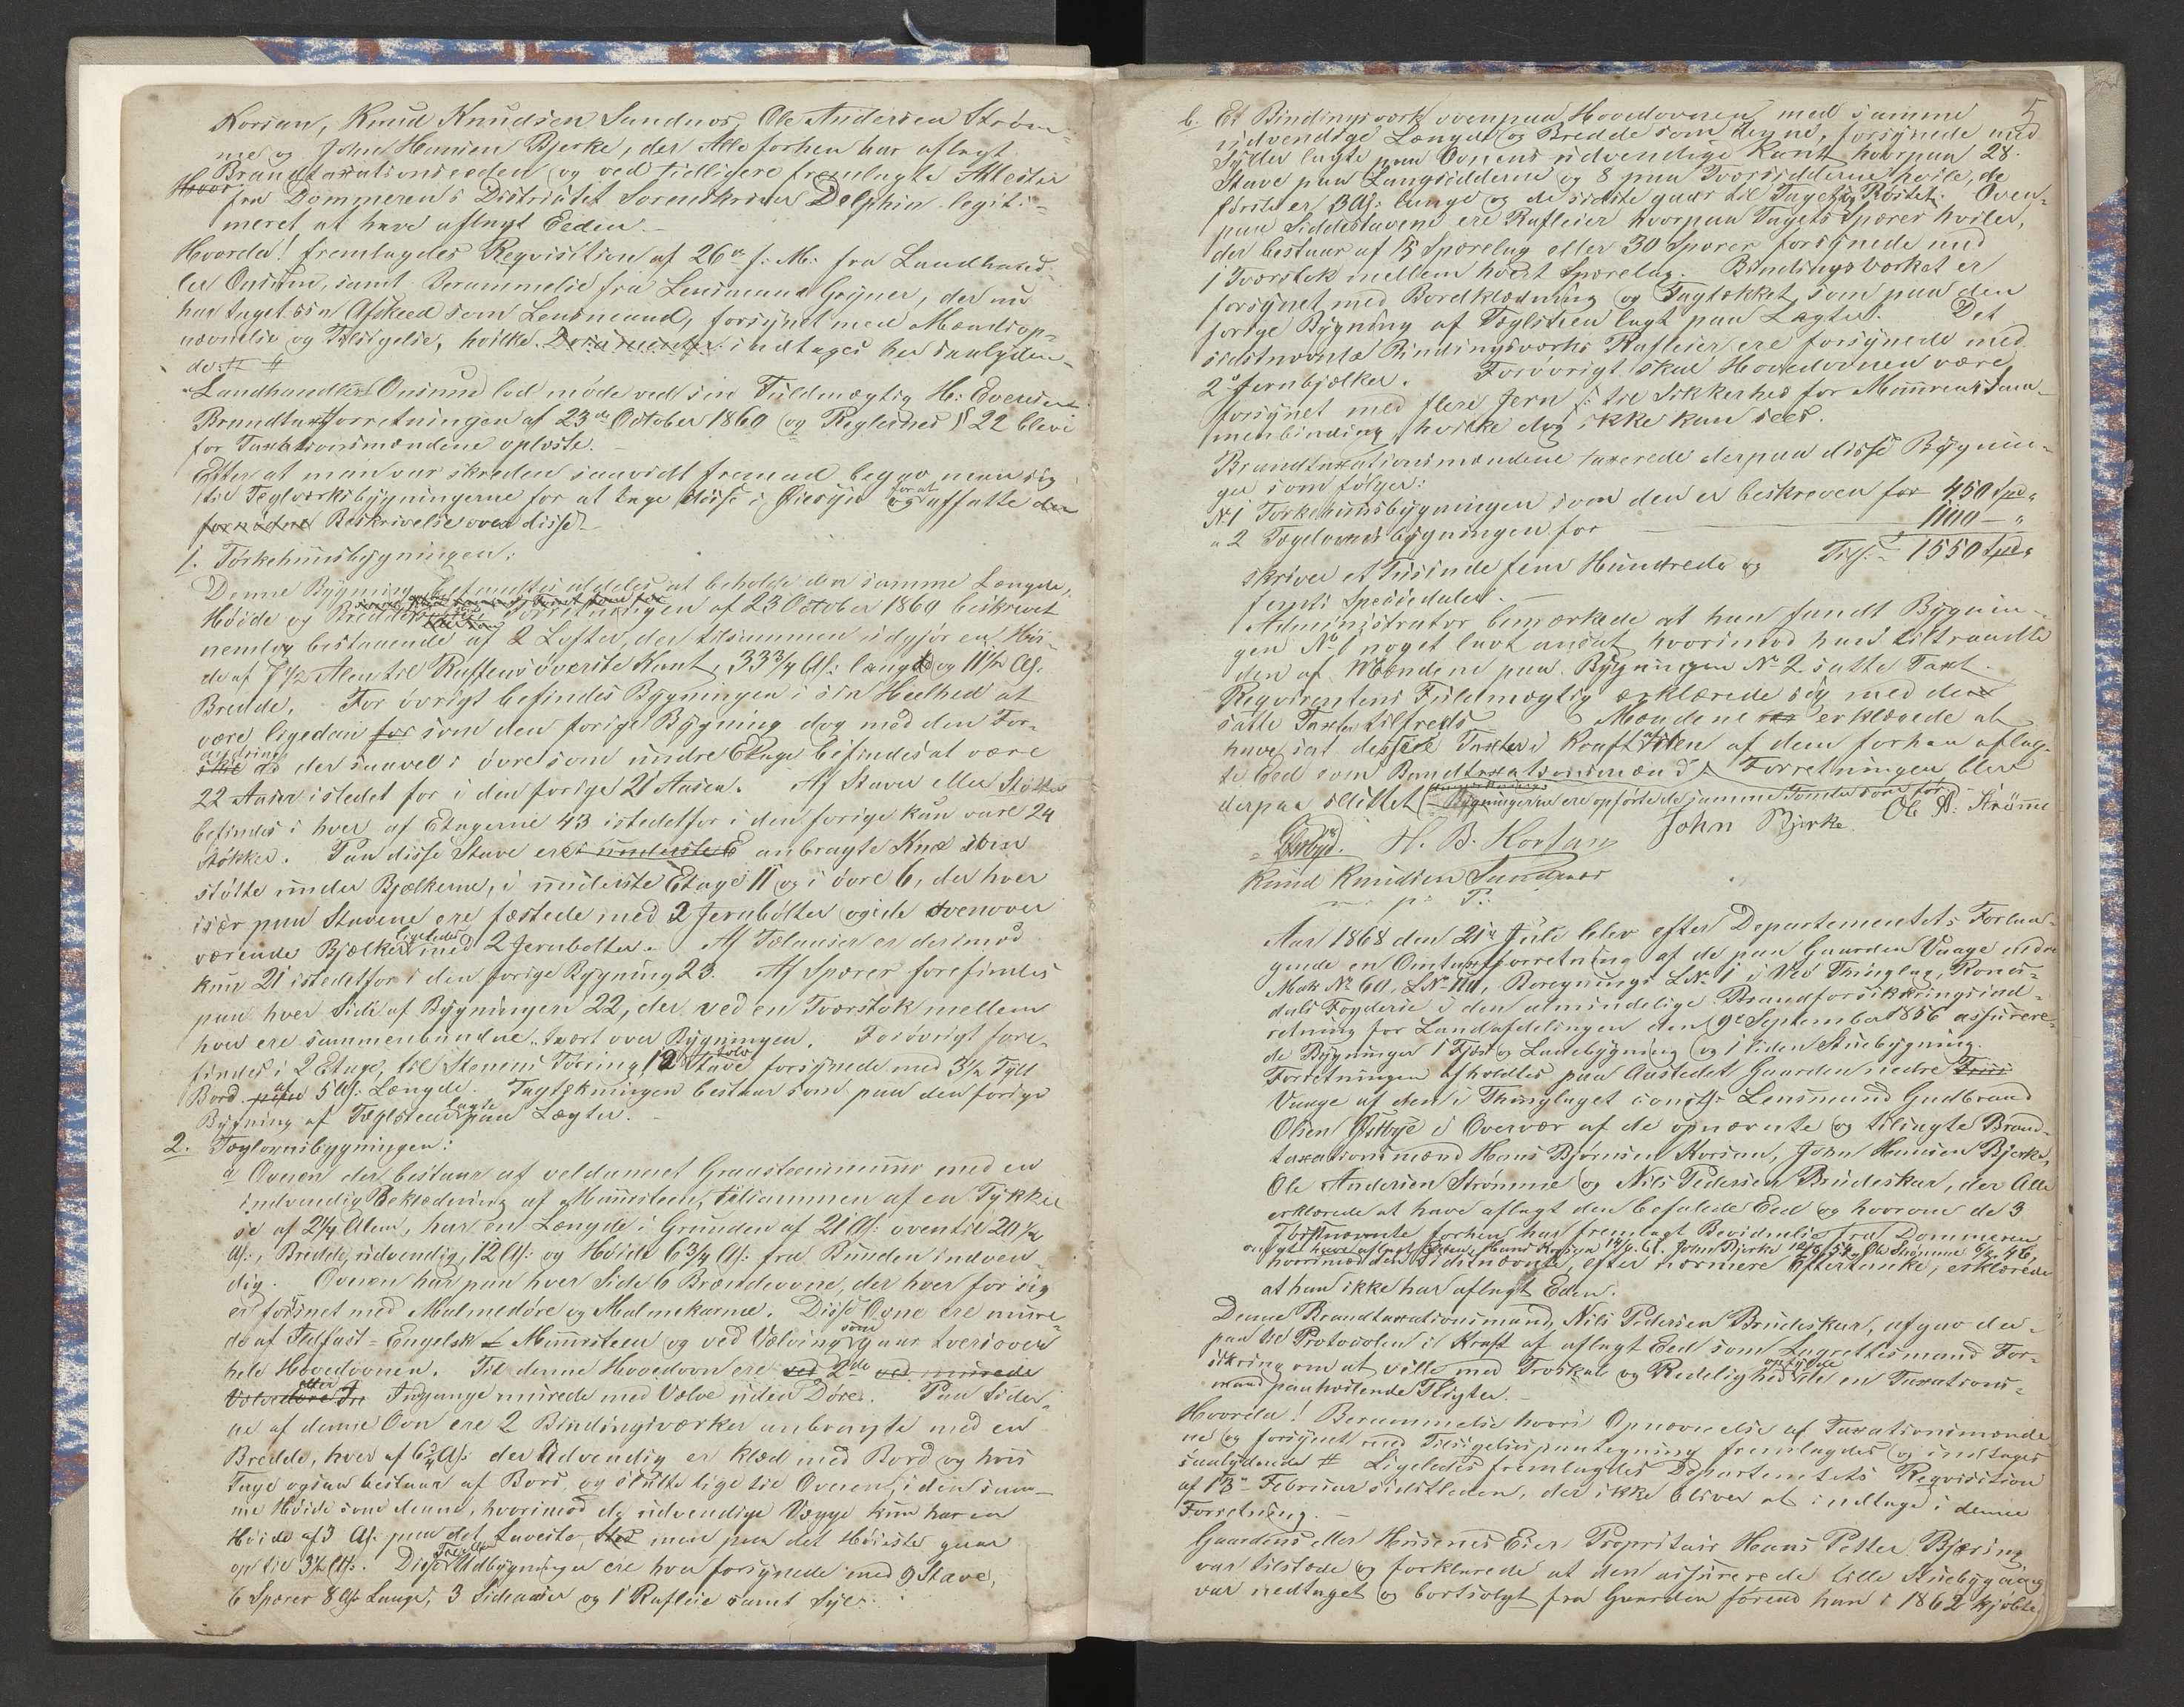 Korsan, Knud Knudsen Sundnæs, Ole Andersen Strøm-
me og John Hansen Bjerke, der Alle forhen har aflagt
Brandtaxationseeden og ved tidligere fremlagte Attester
fra Dommeren i Distriktet Sorenskriver Delphin legiti-
meret at have aflagt Eeden.
Hvorda! fremlagdes Reqvisition af 26de f: M: fra Landhand-
ler Onsum, samt Berammelse fra Lensmand Gryner, der nu
har taget sin Afskeed som Lensmand, forsynet med Mændsop-
nævnelse og Tilsigelse, hvilke Documenter indtages her saalyden-
de: #
Landhandler Onsum lod møde ved sin Fuldmægtig H: Evensen.
Brandtaxtforretningen af 23de October 1860 og Reglernes § 22 blev
for Taxationsmændene oplæste.
Efter at man var skreden saavidt fremad begav man sig
til Teglværksbygningerne for at tage disse i Øiesyn og for at affatte den
fornødne Beskrivelse over disse
1. Tørkehuusbygningen:
Denne Bygning befandtes at beholde den samme Længde,
Høide og Bredde Forretningen af 23 October 1860 beskrevet
nemlig bestaaende af 2 Lofter, der tilsammen udgjør en Høi-
de af 7 1/2 Alen til Raftens øverste Kant, 33 3/4 Al: lang og 11 1/2 Al:
Bredde. For øvrigt befindes Bygningen i sin Heelhed at
være ligedan for som den forige Bygning dog med den For-
andring at der saavel i øvre som undre Etage befindes at være
22 Aaser istedet for i den forige 21 Aaser. Af Staver eller Støtter
befindes i hver af Etagerne 43 istedetfor i den forige kun vare 24
Støkker. Paa disse Stave ere i underste E anbragte Knæ som
støtte under Bjælkerne, i underste Etage 11 og i øvre 6, der hver
især paa Stavene ere fæstede med 2 Jernbolter og i de ovenover
værende Bjælker ligeledes med 2 Jernbolter. Af Tælaaser er derimod
kun 21 istedetfor i den forige Bygning 23. Af Spærer forefindes
paa hver Side af Bygningen 22, der ved en Tværstok mellem
hver ere sammenbundne tvært over Bygningen. Forøvrigt fore-
findes i 2 Etage, til Stenens Tørring 12 tolv Stave forsynede med 3 1/2 Tyll
Bord af 5 Al: Længde. Tagtækningen bestaar som paa den forige
Bygning af Teglsteen lagte paa Lægter.
2. Teglovnsbygningen:
a Ovnen der bestaar af veldannet Graasteensmuur med en
indvendig Beklædning af Muursteen, tilsammen af en Tykkel-
se af 2 1/4 Alen, har en Længde i Grunden af 21 Al: oventil 20 1/2
Al:, Bredde, udvendig, 12 Al: og Høide 6 3/4 Al: fra Bunden indven-
dig. Ovnen har paa hver Side 6 Brændeovne, der hver for sig
er forsynet med Malmedøre og Malmekarme. Disse Ovne ere mure-
de af Ildfast-Engelsk Muursteen og ved Vælving som gaar tversover
hele Hovedovnen. Til denne Hovedovn ere 2de
eller Indgange murede med Vælve uden Døre. Paa Sider-
ne af denne Ovn ere 2 Bindingsværker anbragte med en
Bredde, hver af 6 3/4 Al: der Udvendig er klæd med Bord og hvis
Tage ogsaa bestaar af Bord, og slutte lige til Ovnen, i den sam-
me Høide som denne, hvorimod dog udvendige Vægge kun har en
Høide af 3 Al: paa det Laveste, men paa det Høieste gaar
op til 3 1/2 Al:. Disse Udbygninger ere hver forsynede med 9 Stave,
6 Spærer 8 Al: Lange, 3 Sideaaser og 1 Rafleie samt Syle.
5
b. Et Bindingsværk ovenpaa Hovedovnen med samme
udvendige Længde og Bredde som denne, forsynede med
Sylder lagte paa Ovnens udvendige Kant hvorpaa 28
Stave paa Langsidderne og 8 paa Tværsidderne hvile, de
første er 3 Al: lange og de sidste gaar til Taget og Røstet. Oven-
paa Sidestavene ere Rafleier hvorpaa Tagets Spærer hviler,
der bestaar af 15 Spærelag eller 30 Spærer forsynede med
1 Tværstok mellem hvert Spærelag. Bindingsværket er
forsynet med Bordklædning og Tagtækket som paa den
forige Bygning af Teglsteen lagt paa Lægter. Det
sidstnævnte Bindingsværks Rafleier ere forsynede med
2de Jernbjælker. Forøvrigt skal Hovedovnen være
forsynet med flere Jern til Sikkerhed for Muurens Sam-
menbinding hvilke dog ikke kan sees.
Brandtaxationsmændene taxerede derpaa disse Bygnin-
ger som følger:
No 1 Tørkehuusbygningen som den er beskreven for 450 Spd "
" 2 Teglovnsbygningen for 1100 — "
skriver et Tusinde fem Hundrede og Tils. 1550 Spd
femti Speciedaler.
Administrator bemærkede at han fandt Bygnin-
gen No 1 noget lavt ansat, hvorimod han tiltraadte
den af Mændene paa Bygningen No 2 satte Taxt.
Reqvirentens Fuldmægtig erklærede sig med den
satte Taxter tilfreds Mændene erklærede at
have sat disse Taxter i Kraft af den af dem forhen aflag-
te Eed som Brandtaxationsmænd. Forretningen blev
derpaa sluttet Bygningerne ere opførte de samme Tomter som før
Østbye. H. B. Korsan John Bjerke. Ole A. Strømme
Knud Knudsen Sundnæs
m. p. P.
Aar 1868 den 21de Juli blev efter Departementets Forlan-
gende en Omtaxtforretning af de paa Gaarden Vaage nedre
Matr No 60, LNo 110, Beregnings LNr 1 i Veø Thinglag, Roms-
dals Fogderie i den almindelige Brandforsikkringsind-
retning for Landafdelingen den 9de September 1856 assurere-
de Bygninger 1 Fjøs og Ladebygning og 1 liden Stuebygning.
Forretningen afholdtes paa Aastedet Gaarden nedre
Vaage af den i Thinglaget const. Lensmand Gudbrand
Olsen Østbye i Overvær af de opnævnte og tilsagte Brand-
taxationsmænd Hans Bjørnsen Korsan, John Hansen Bjerke,
Ole Andersen Strømme og Nils Pedersen Brudeskar, der Alle
erklærede at have aflagt den befalede Eed og hvorom de 3
Førstnævnte forhen har fremlagt Bevidnelse fra Dommeren
Hans Korsan 14/9 61. John Bjerke 54, Ole Strømme 46,
hvorimod den Sidstnævnte, efter nærmere Eftertanke, erklærede
at han ikke har aflagt Eden.
Denne Brandtaxationsmand, Nils Pedersen Brudeskar, afgav der-
paa til Protocolen i Kraft af aflagt Eed som Lagrettesmand For-
sikring om at ville med Troskab og Redelighed opfylde de en Taxations-
mand paahvilende Pligter.
Hvorda! Berammelse hvori Opnævnelse af Taxationsmænde-
ne og forsynet med Tilsigelsespaategning fremlagdes og indtages
saalydende # Ligeledes fremlagdes Departementets Reqvisition
af 13de Februar sidstleden, der ikke bliver at indtage i denne
Forretning.
Gaardens eller Husenes Eier Proprietair Hans Petter Bjering
var tilstæde og forklarede at den assurerede lille Stuebygning
var nedtaget og bortsolgt fra Gaarden førend han i 1862 kjøbte